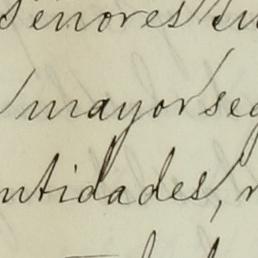 señores su
mayor seg
ntidades,